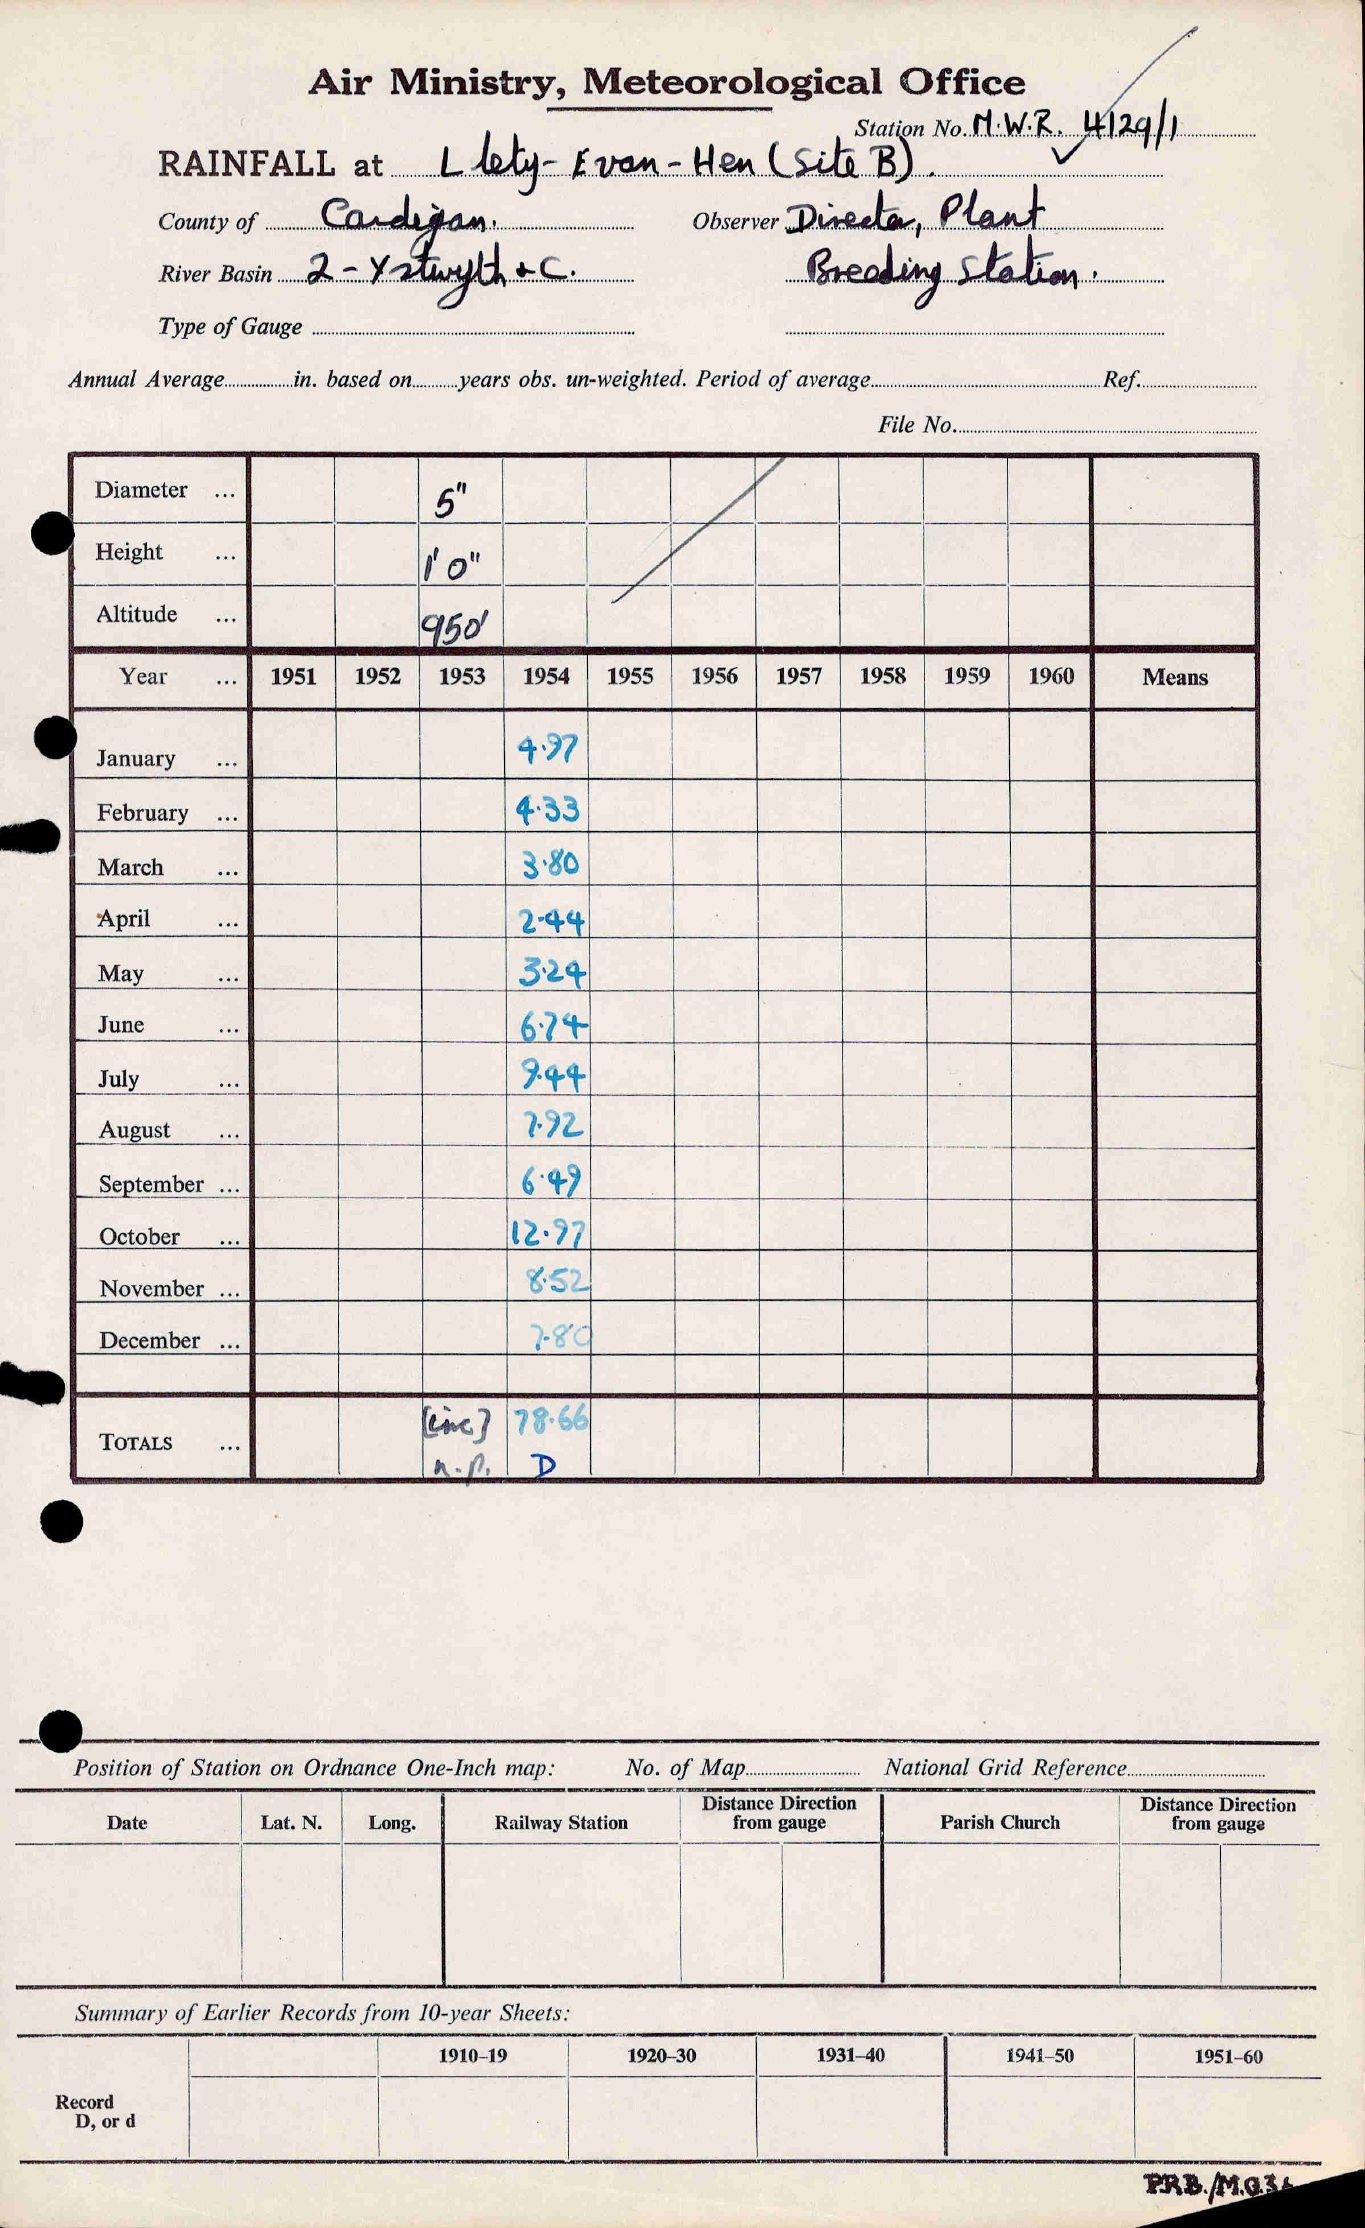 Air Ministry, Meteorological Office
Station No. M.W.R. 4129/1
RAINFALL at Llety-Evan-Hen (Site B).
County of Cardigan. Observer Director, Plant
River Basin 2-Ystwyth + C. Breeding Station.
Type of Gauge
Annual Average in. based on years obs. un-weighted. Period of average Ref.
File No.
Diameter ... 5"
Height ... 1' 0"
Altitude ... 950'
Year ... 1951 1952 1953 1954 1955 1956 1957 1958 1959 1960 Means
January ... 4.97
February ... 4.33
March ... 3.80
April ... 2.44
May ... 3.24
June ... 6.74
July ... 9.44
August ... 7.92
September ... 6.49
October ... 12.97
November ... 8.52
December ... 7.80
TOTALS ... [inc] 78.66
n.p. D
Position of Station on Ordnance One-Inch map: No. of Map National Grid Reference
Date Lat. N. Long. Railway Station Distance Direction from gauge Parish Church Distance Direction from gauge
Summary of Earlier Records from 10-year Sheets:
1910–19 1920–30 1931–40 1941–50 1951–60
Record
D, or d
P.R.B./M.O.